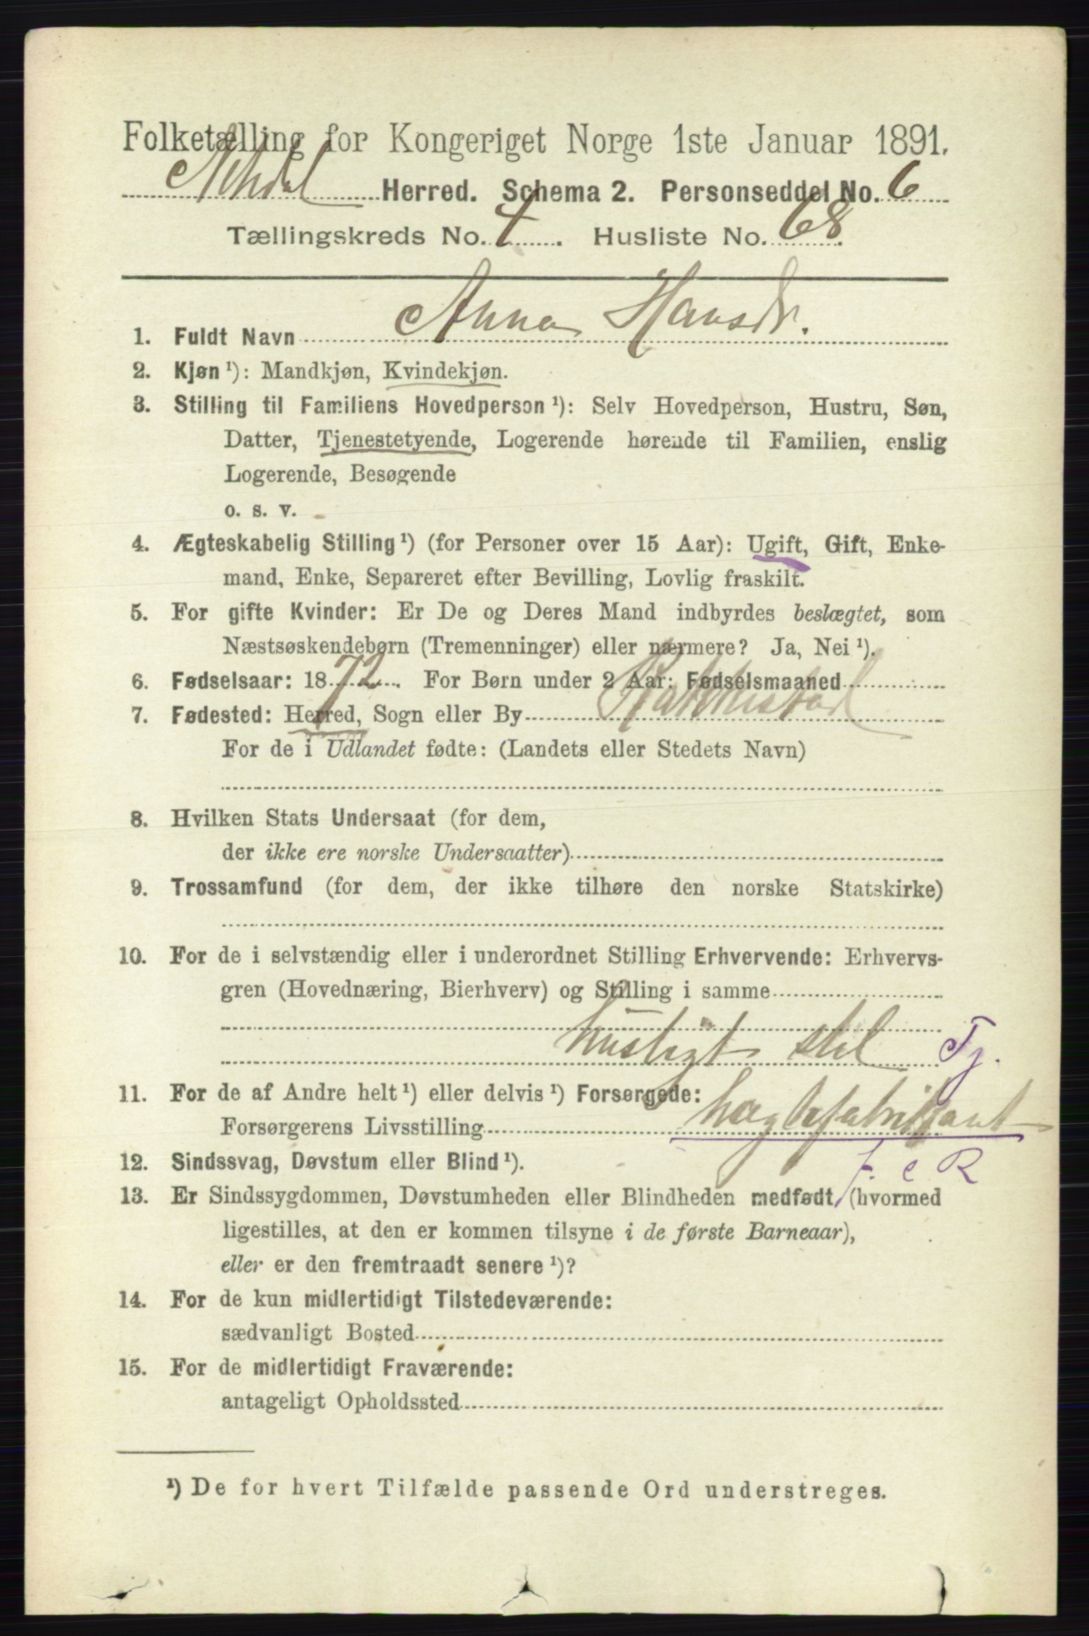 Folketælling for Kongeriget Norge 1ste Januar 1891.
Herred. Schema 2. Personseddel No. 6
Tællingskreds No. 4. Husliste No. 68.
1. Fuldt Navn Anna Hansdr.
2. Kjøn ¹): Mandkjøn, Kvindekjøn.
3. Stilling til Familiens Hovedperson ¹): Selv Hovedperson, Hustru, Søn,
Datter, Tjenestetyende, Logerende hørende til Familien, enslig
Logerende, Besøgende
o. s. v.
4. Ægteskabelig Stilling ¹) (for Personer over 15 Aar): Ugift, Gift, Enke-
mand, Enke, Separeret efter Bevilling, Lovlig fraskilt.
5. For gifte Kvinder: Er De og Deres Mand indbyrdes beslægtet, som
Næstsøskendebørn (Tremenninger) eller nærmere? Ja, Nei ¹).
6. Fødselsaar: 1872. For Børn under 2 Aar: Fødselsmaaned
7. Fødested: Herred, Sogn eller By Rakkestad
For de i Udlandet fødte: (Landets eller Stedets Navn)
8. Hvilken Stats Undersaat (for dem,
der ikke ere norske Undersaatter)
9. Trossamfund (for dem, der ikke tilhøre den norske Statskirke)
10. For de i selvstændig eller i underordnet Stilling Erhvervende: Erhvervs-
gren (Hovednæring, Bierhverv) og Stilling i samme
husligt stel Tj.
11. For de af Andre helt ¹) eller delvis ¹) Forsørgede:
Forsørgerens Livsstilling hægtefabrikant
12. Sindssvag, Døvstum eller Blind ¹). f. e R
13. Er Sindssygdommen, Døvstumheden eller Blindheden medfødt, (hvormed
ligestilles, at den er kommen tilsyne i de første Barneaar),
eller er den fremtraadt senere ¹)?
14. For de kun midlertidigt Tilstedeværende:
sædvanligt Bosted
15. For de midlertidigt Fraværende:
antageligt Opholdssted
¹) De for hvert Tilfælde passende Ord understreges.